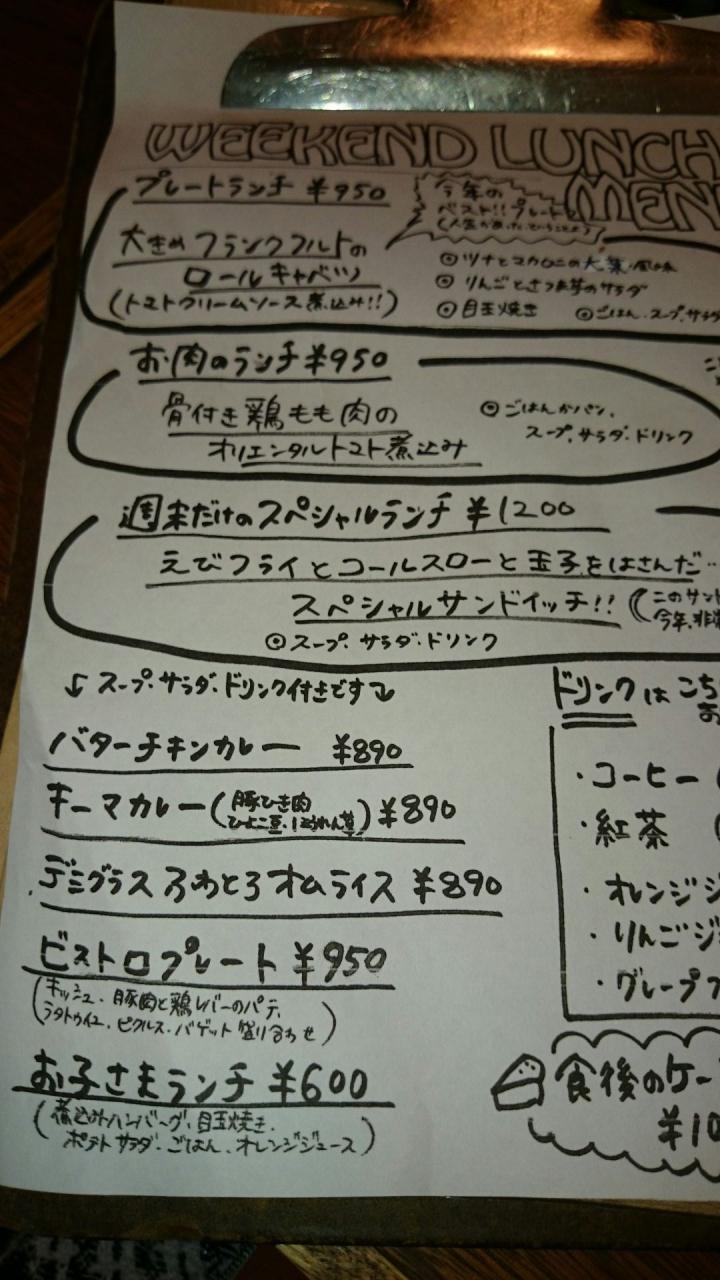 WEEKEND LUNCH
MEN
プレートランチ ¥950
今年の
ベスト!!プレート
大きめフランクフルトの
ロールキャベツ
(トマトクリームソース煮込み!!)
◎ツナとマカロニの大葉風味
◎りんごとさつま芋のサラダ
◎目玉焼き ◎ごはん、スープ、サラダ
お肉のランチ ¥950
骨付き鶏もも肉の
オリエンタルトマト煮込み
◎ごはんかパン、
スープ、サラダ・ドリンク
週末だけのスペシャルランチ ¥1200
えびフライとコールスローと玉子をはさんだ…
スペシャルサンドイッチ!!
(このサンド
今年、非
◎スープ・サラダ・ドリンク
スープ・サラダ・ドリンク付きです
バターチキンカレー ¥890
キーマカレー(豚ひき肉
ひよこ豆・ほうれん草) ¥890
デミグラスふわとろオムライス ¥890
ビストロプレート ¥950
(キッシュ・豚肉と鶏レバーのパテ、
ラタトゥイユ、ピクルス・バゲット盛り合わせ)
お子さまランチ ¥600
(煮込みハンバーグ、目玉焼き、
ポテトサラダ・ごはん、オレンジジュース)
ドリンクはこち
お
・コーヒー(
・紅茶(
・オレンジジ
・りんごジ
・グレープフ
食後のケー
¥10